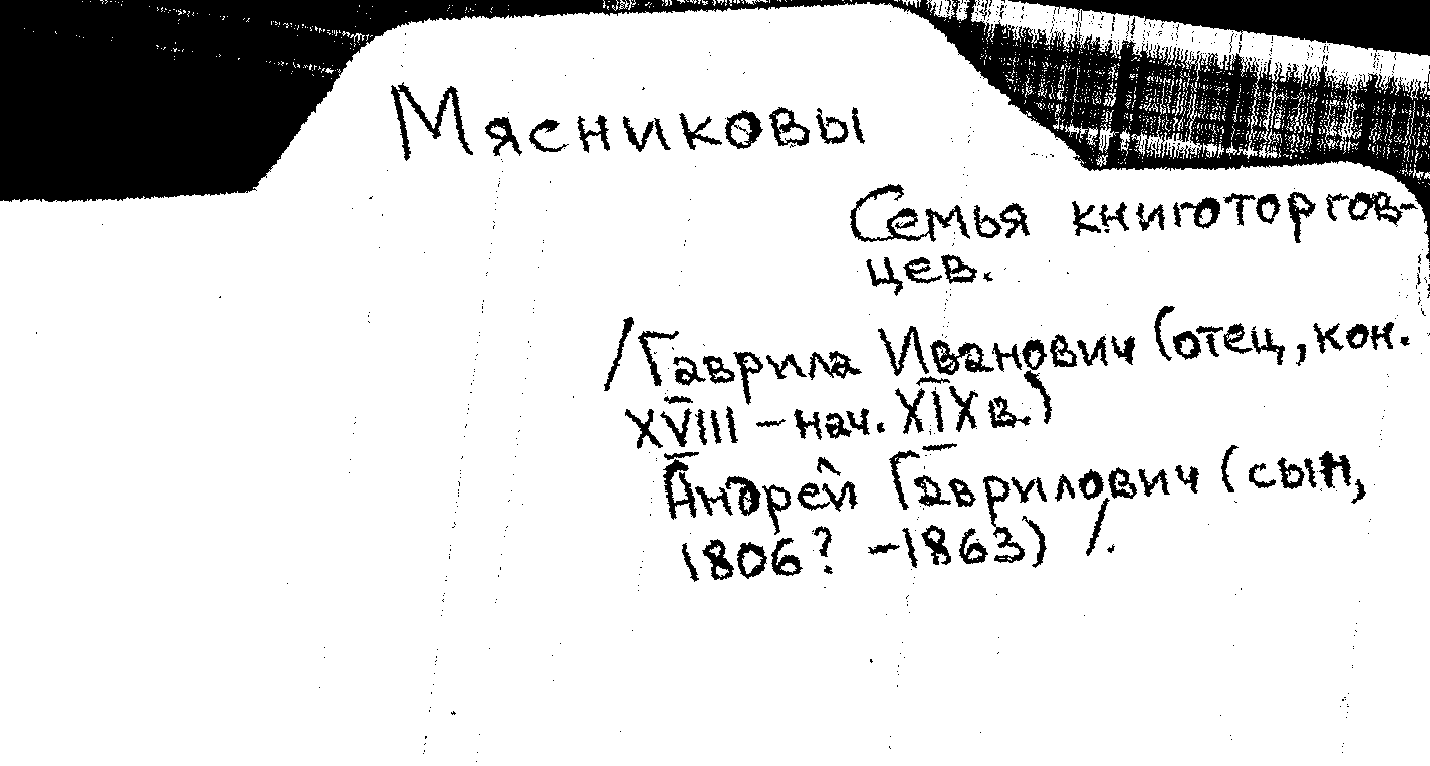 Мясниковы
Семья книготоргов-
цев.
/Гаврила Иванович (отец, кон.
XVIII – нач. XIX в.)
Андрей Гаврилович (сын,
1806? – 1863) /.